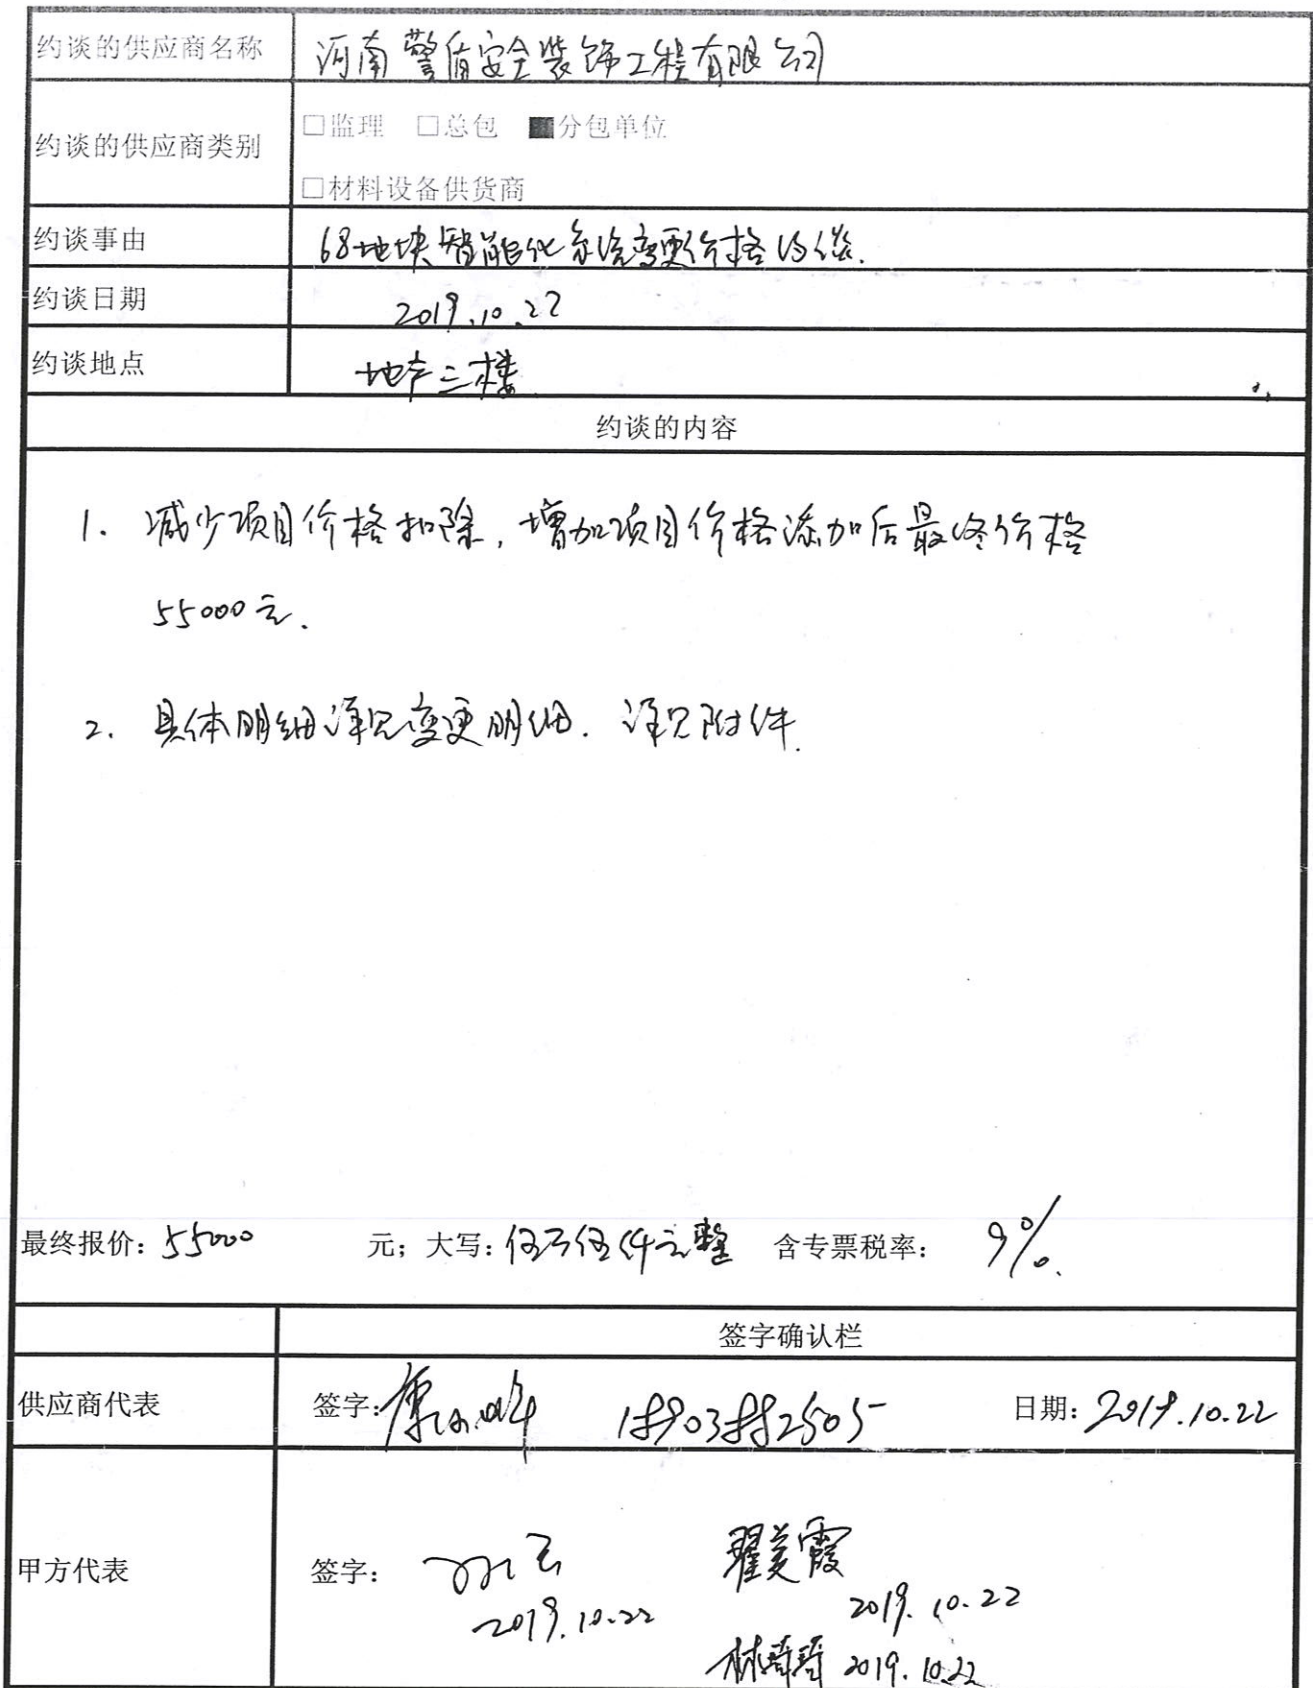 约谈的供应商名称 河南警盾安全装饰工程有限公司
约谈的供应商类别 □监理 □总包 ■分包单位
□材料设备供货商
约谈事由 68地块智能化系统变更价格约谈.
约谈日期 2019.10.22
约谈地点 地产三楼
约谈的内容
1. 减少项目价格扣除，增加项目价格添加后最终价格
55000元.
2. 具体明细详见变更明细. 详见附件.
最终报价：55000 元；大写：伍万伍仟元整 含专票税率： 9%.
签字确认栏
供应商代表 签字： 18903882505 日期：2019.10.22
甲方代表 签字： 翟美霞
2019.10.22 2019.10.22
2019.10.22